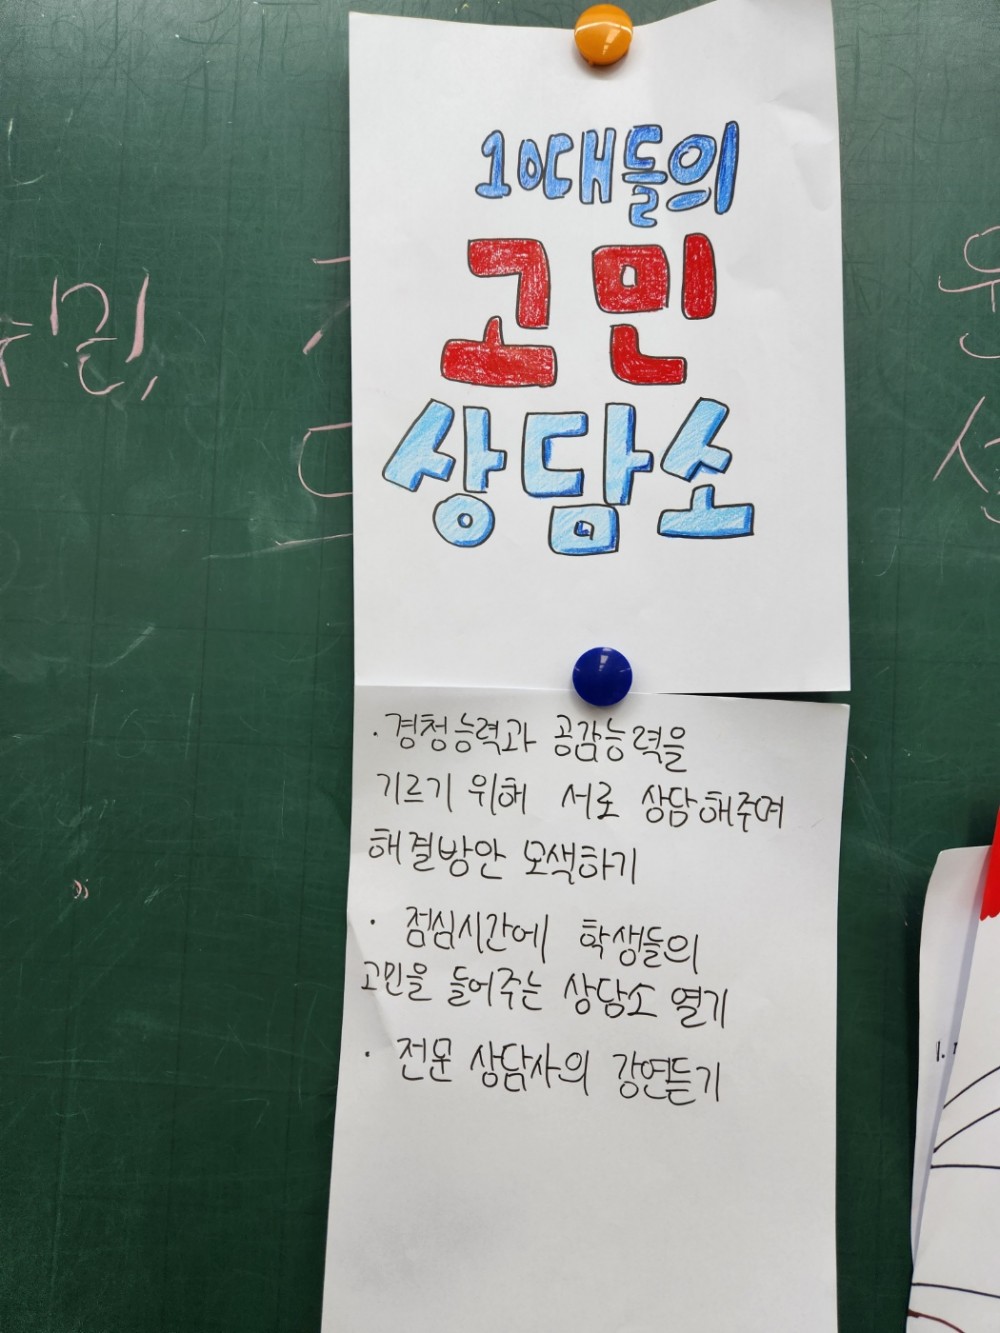 10대들의
고민
상담소
· 경청능력과 공감능력을
기르기 위해 서로 상담해주며
해결방안 모색하기
· 점심시간에 학생들의
고민을 들어주는 상담소 열기
· 전문 상담사의 강연듣기
1.